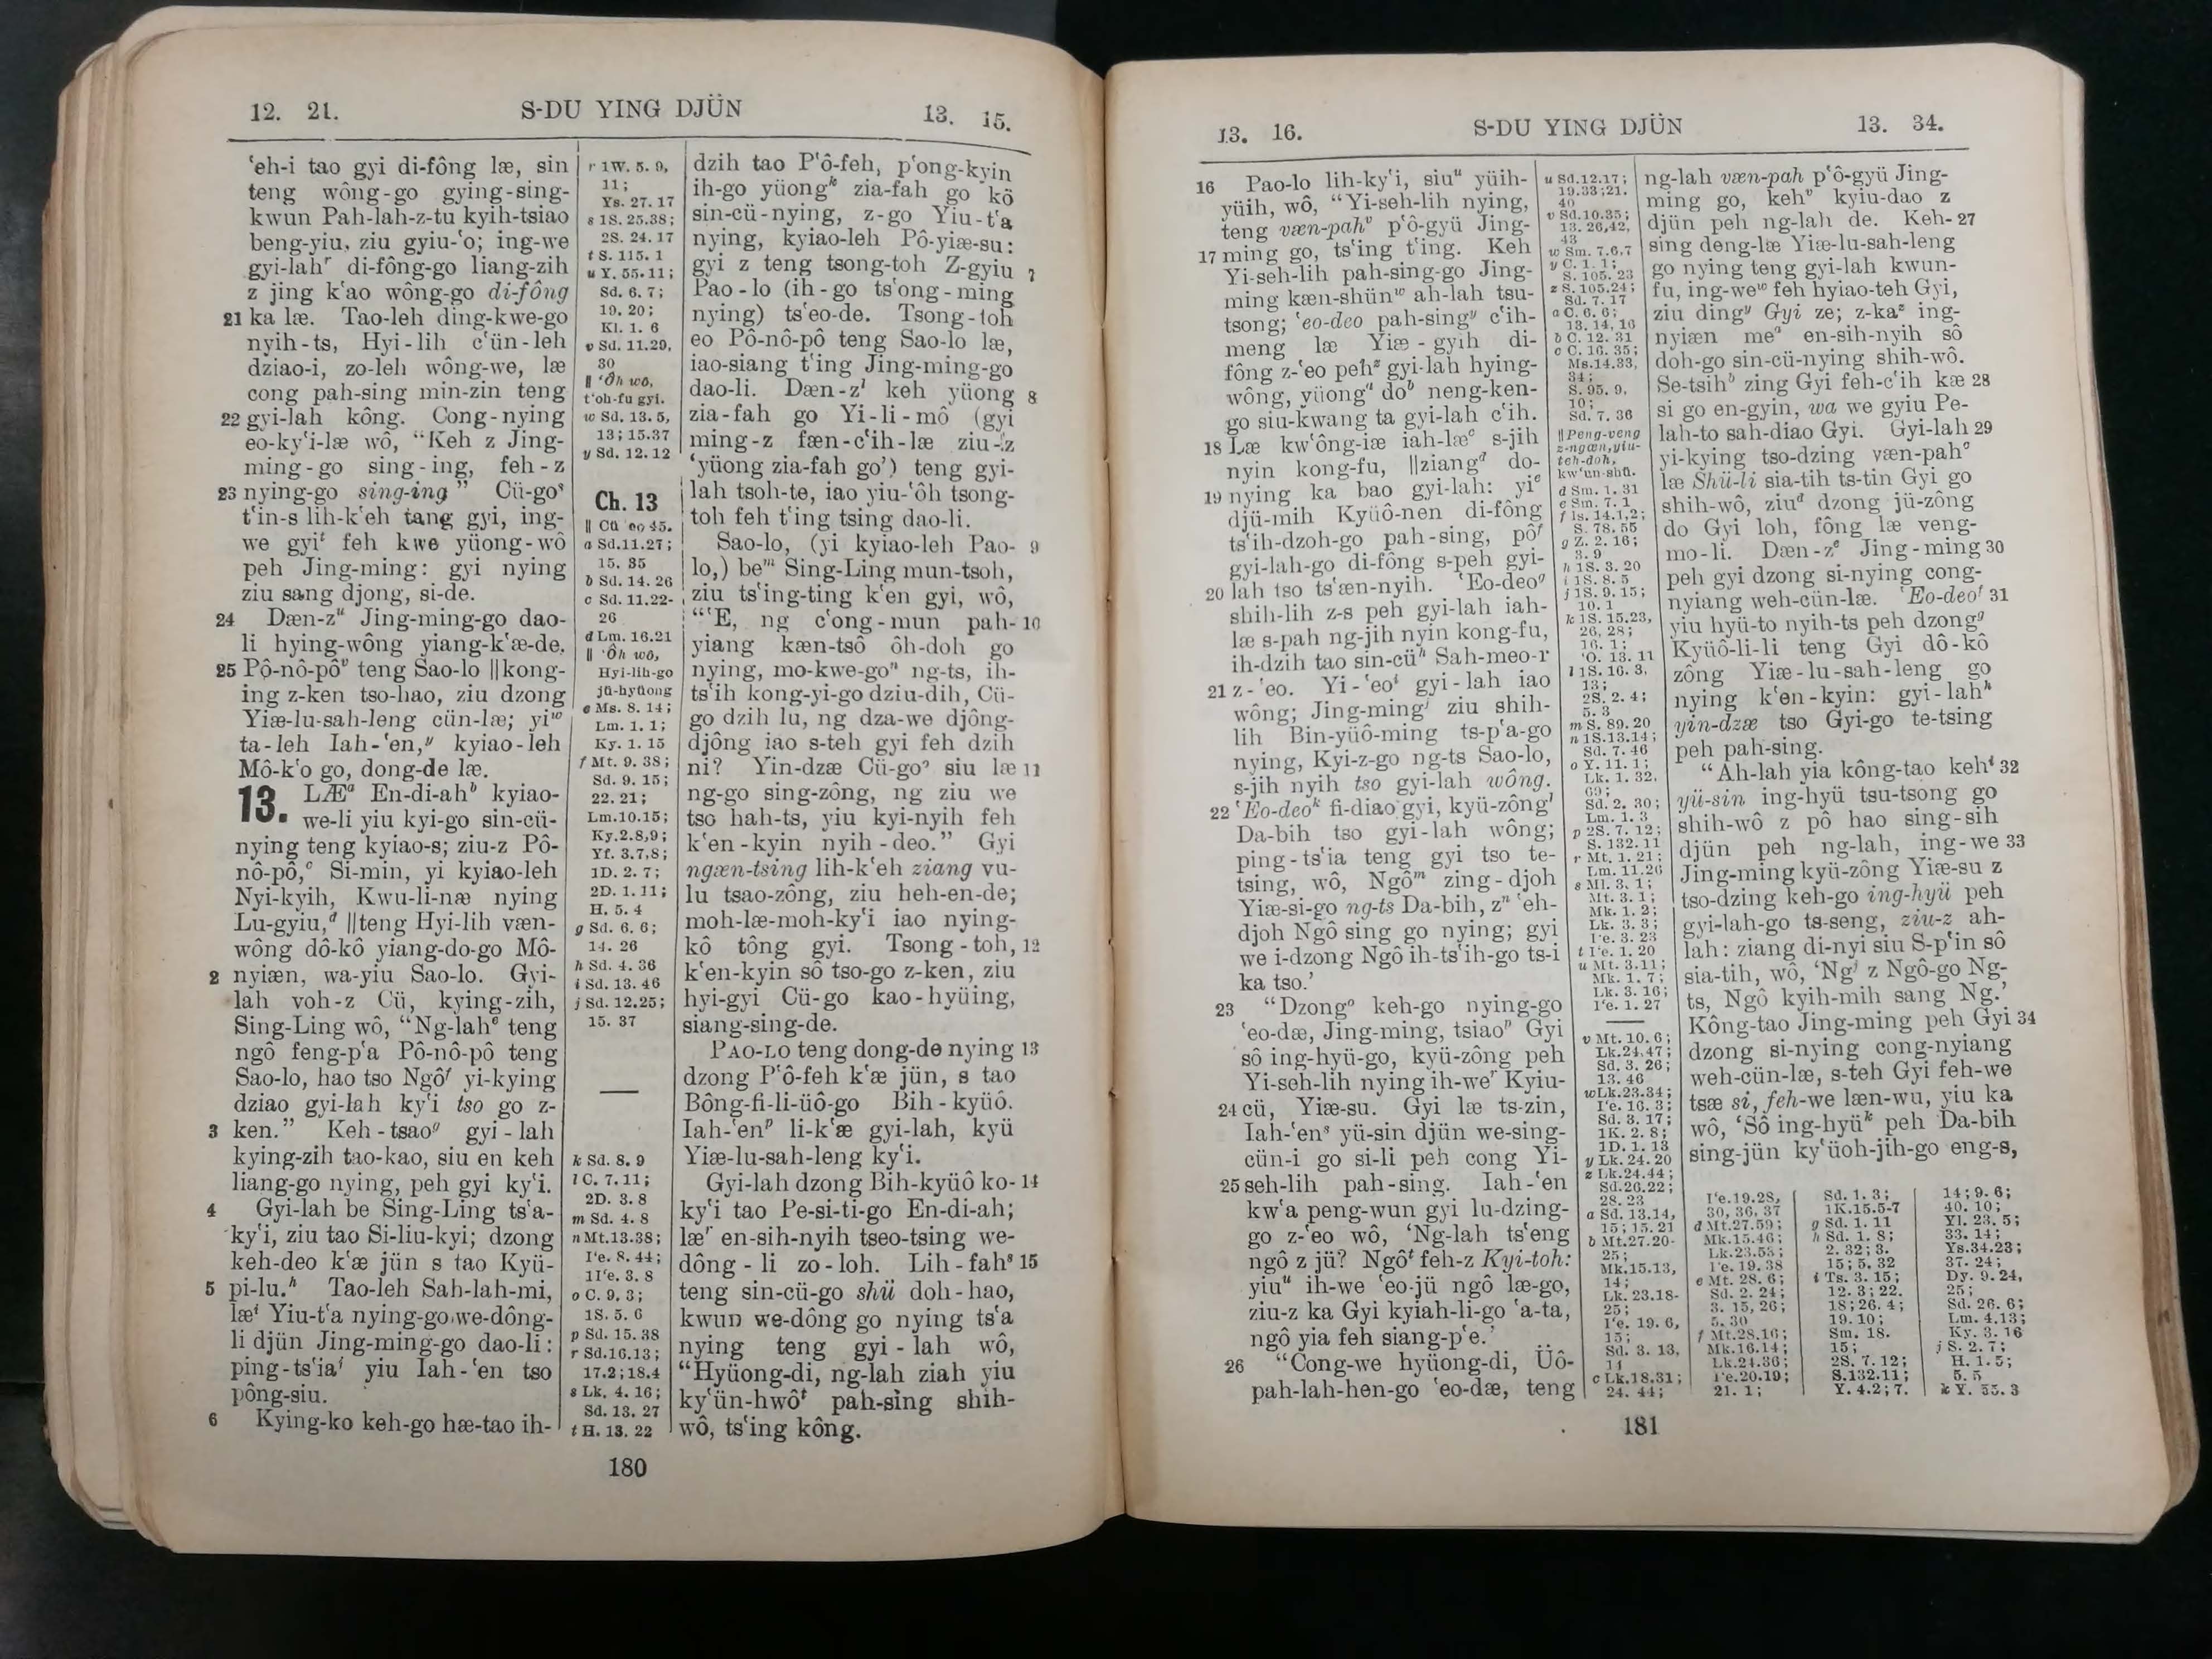 12. 21.
S-DU YING DJÜN
13. 15.
ʻeh-i tao gyi di-fông læ, sin
teng wông-go gying-sing-
kwun Pah-lah-z-tu kyih-tsiao
beng-yiu, ziu gyiu-ʻo; ing-we
gyi-lahʳ di-fông-go liang-zih
z jing kʻao wông-go di-fông
21 ka læ. Tao-leh ding-kwe-go
nyih-ts, Hyi-lih cʻün-leh
dziao-i, zo-leh wông-we, læ
cong pah-sing min-zin teng
22 gyi-lah kông. Cong-nying
eo-kyʻi-læ wô, “Keh z Jing-
ming-go sing-ing, feh-z
23 nying-go sing-ing” Cü-goˢ
tʻin-s lih-kʻeh tang gyi, ing-
we gyiᵗ feh kwe yüong-wô
peh Jing-ming: gyi nying
ziu sang djong, si-de.
24 Dæn-zᵘ Jing-ming-go dao-
li hying-wông yiang-kʻæ-de.
25 Pô-nô-pôᵛ teng Sao-lo ||kong-
ing z-ken tso-hao, ziu dzong
Yiæ-lu-sah-leng cün-læ; yiʷ
ta-leh Iah-ʻen,ʸ kyiao-leh
Mô-kʻo go, dong-de læ.
13. LÆᵃ En-di-ahᵇ kyiao-
we-li yiu kyi-go sin-cü-
nying teng kyiao-s; ziu-z Pô-
nô-pô,ᶜ Si-min, yi kyiao-leh
Nyi-kyih, Kwu-li-næ nying
Lu-gyiu,ᵈ ||teng Hyi-lih væn-
wông dô-kô yiang-do-go Mô-
2 nyiæn, wa-yiu Sao-lo. Gyi-
lah voh-z Cü, kying-zih,
Sing-Ling wô, “Ng-lahᵉ teng
ngô feng-pʻa Pô-nô-pô teng
Sao-lo, hao tso Ngôᶠ yi-kying
dziao gyi-lah kyʻi tso go z-
3 ken.” Keh-tsaoᵍ gyi-lah
kying-zih tao-kao, siu en keh
liang-go nying, peh gyi kyʻi.
4 Gyi-lah be Sing-Ling tsʻa-
kyʻi, ziu tao Si-liu-kyi; dzong
keh-deo kʻæ jün s tao Kyü-
5 pi-lu.ʰ Tao-leh Sah-lah-mi,
læⁱ Yiu-tʻa nying-go we-dông-
li djün Jing-ming-go dao-li:
ping-tsʻiaʲ yiu Iah-ʻen tso
pông-siu.
6 Kying-ko keh-go hæ-tao ih-
r 1W. 5. 9,
11;
Ys. 27. 17
s 1S. 25.38;
2S. 24. 17
t S. 115. 1
u Y. 55. 11;
Sd. 6. 7;
19. 20;
Kl. 1. 6
v Sd. 11.29,
30
|| ʻÔh wô,
tʻoh-fu gyi.
w Sd. 13. 5,
13; 15.37
y Sd. 12. 12
Ch. 13
|| Cü eo 45.
a Sd.11.27;
15. 35
b Sd. 14. 26
c Sd. 11.22-
26
d Lm. 16.21
|| ʻÔh wô,
Hyi-lih-go
jü-hyüong
e Ms. 8. 14;
Lm. 1. 1;
Ky. 1. 15
f Mt. 9. 38;
Sd. 9. 15;
22. 21;
Lm.10.15;
Ky.2.8,9;
Yf. 3.7,8;
1D. 2. 7;
2D. 1. 11;
H. 5. 4
g Sd. 6. 6;
14. 26
h Sd. 4. 36
i Sd. 13. 46
j Sd. 12.25;
15. 37
k Sd. 8. 9
l C. 7. 11;
2D. 3. 8
m Sd. 4. 8
n Mt.13.38;
Iʻe. 8. 44;
1Iʻe. 3. 8
o C. 9. 3;
1S. 5. 6
p Sd. 15. 38
r Sd.16.13;
17.2;18.4
s Lk. 4. 16;
Sd. 13. 27
t H. 13. 22
dzih tao Pʻô-feh, pʻong-kyin
ih-go yüongᵏ zia-fah go kô
sin-cü-nying, z-go Yiu-tʻa
nying, kyiao-leh Pô-yiæ-su:
gyi z teng tsong-toh Z-gyiu 7
Pao-lo (ih-go tsʻong-ming
nying) tsʻeo-de. Tsong-toh
eo Pô-nô-pô teng Sao-lo læ,
iao-siang tʻing Jing-ming-go
dao-li. Dæn-zˡ keh yüong 8
zia-fah go Yi-li-mô (gyi
ming-z fæn-cʻih-læ ziu-z
‘yüong zia-fah go’) teng gyi-
lah tsoh-te, iao yiu-ʻôh tsong-
toh feh tʻing tsing dao-li.
Sao-lo, (yi kyiao-leh Pao- 9
lo,) beᵐ Sing-Ling mun-tsoh,
ziu tsʻing-ting kʻen gyi, wô,
“ʻE, ng cʻong-mun pah- 10
yiang kæn-tsô ôh-doh go
nying, mo-kwe-goⁿ ng-ts, ih-
tsʻih kong-yi-go dziu-dih, Cü-
go dzih lu, ng dza-we djông-
djông iao s-teh gyi feh dzih
ni? Yin-dzæ Cü-goᵒ siu læ 11
ng-go sing-zông, ng ziu we
tso hah-ts, yiu kyi-nyih feh
kʻen-kyin nyih-deo.” Gyi
ngæn-tsing lih-kʻeh ziang vu-
lu tsao-zông, ziu heh-en-de;
moh-læ-moh-kyʻi iao nying-
kô tông gyi. Tsong-toh, 12
kʻen-kyin sô tso-go z-ken, ziu
hyi-gyi Cü-go kao-hyüing,
siang-sing-de.
PAO-LO teng dong-de nying 13
dzong Pʻô-feh kʻæ jün, s tao
Bông-fi-li-üô-go Bih-kyüô.
Iah-ʻenᵖ li-kʻæ gyi-lah, kyü
Yiæ-lu-sah-leng kyʻi.
Gyi-lah dzong Bih-kyüô ko- 14
kyʻi tao Pe-si-ti-go En-di-ah;
læʳ en-sih-nyih tseo-tsing we-
dông-li zo-loh. Lih-fahˢ 15
teng sin-cü-go shü doh-hao,
kwun we-dông go nying tsʻa
nying teng gyi-lah wô,
“Hyüong-di, ng-lah ziah yiu
kyʻün-hwôᵗ pah-sing shih-
wô, tsʻing kông.
180
13. 16.
S-DU YING DJÜN
13. 34.
16 Pao-lo lih-kyʻi, siuᵘ yüih-
yüih, wô, “Yi-seh-lih nying,
teng væn-pahᵛ pʻô-gyü Jing-
ming go, tsʻing tʻing. Keh
17 Yi-seh-lih pah-sing-go Jing-
ming kæn-shünʷ ah-lah tsu-
tsong; ʻeo-deo pah-singʸ cʻih-
meng læ Yiæ-gyih di-
fông z-ʻeo pehᶻ gyi-lah hying-
wông, yüongᵃ doᵇ neng-ken-
go siu-kwang ta gyi-lah cʻih.
18 Læ kwʻông-iæ iah-læᶜ s-jih
nyin kong-fu, ||ziangᵈ do-
19 nying ka bao gyi-lah: yiᵉ
djü-mih Kyüô-nen di-fông
tsʻih-dzoh-go pah-sing, pôᶠ
gyi-lah-go di-fông s-peh gyi-
20 lah tso tsʻæn-nyih. ʻEo-deoᵍ
shih-lih z-s peh gyi-lah iah-
læ s-pah ng-jih nyin kong-fu,
ih-dzih tao sin-cüʰ Sah-meo-r
21 z-ʻeo. Yi-ʻeoⁱ gyi-lah iao
wông; Jing-mingʲ ziu shih-
lih Bin-yüô-ming ts-pʻa-go
nying, Kyi-z-go ng-ts Sao-lo,
s-jih nyih tso gyi-lah wông.
22 ʻEo-deoᵏ fi-diao gyi, kyü-zôngˡ
Da-bih tso gyi-lah wông;
ping-tsʻia teng gyi tso te-
tsing, wô, Ngôᵐ zing-djoh
Yiæ-si-go ng-ts Da-bih, zⁿ ʻeh-
djoh Ngô sing go nying; gyi
we i-dzong Ngô ih-tsʻih-go ts-i
ka tso.’
23 “Dzongᵒ keh-go nying-go
ʻeo-dæ, Jing-ming, tsiaoᵖ Gyi
sô ing-hyü-go, kyü-zông peh
Yi-seh-lih nying ih-weʳ Kyiu-
24 cü, Yiæ-su. Gyi læ ts-zin,
Iah-ʻenˢ yü-sin djün we-sing-
cün-i go si-li peh cong Yi-
25 seh-lih pah-sing. Iah-ʻen
kwʻa peng-wun gyi lu-dzing-
go z-ʻeo wô, ‘Ng-lah tsʻeng
ngô z jü? Ngôᵗ feh-z Kyi-toh:
yiuᵘ ih-we ʻeo-jü ngô læ-go,
ziu-z ka Gyi kyiah-li-go ʻa-ta,
ngô yia feh siang-pʻe.’
26 “Cong-we hyüong-di, Üô-
pah-lah-hen-go ʻeo-dæ, teng
u Sd.12.17;
19.33;21.
40
v Sd.10.35;
13. 26,42,
43
w Sm. 7.6,7
y C. 1. 1;
S. 105. 23
z S. 105.24;
Sd. 7. 17
a C. 6. 6;
13. 14, 16
b C. 12. 31
c C. 16. 35;
Ms.14.33,
34;
S. 95. 9,
10;
Sd. 7. 36
|| Peng-veng
z-ngæn, yiu-
teh-doh,
kwʻun-shü.
d Sm. 1. 31
e Sm. 7. 1
f Is. 14.1,2;
S. 78. 55
g Z. 2. 16;
3. 9
h 1S. 3. 20
i 1S. 8. 5
j 1S. 9. 15;
10. 1
k 1S. 15.23,
26, 28;
16. 1;
ʻO. 13. 11
l 1S. 16. 3,
13;
2S. 2. 4;
5. 3
m S. 89. 20
n 1S.13.14;
Sd. 7. 46
o Y. 11. 1;
Lk. 1. 32,
69;
Sd. 2. 30;
Lm. 1. 3
p 2S. 7. 12;
S. 132. 11
r Mt. 1. 21;
Lm. 11.26
s Ml. 3. 1;
Mt. 3. 1;
Mk. 1. 2;
Lk. 3. 3;
Iʻe. 3. 23
t Iʻe. 1. 20
u Mt. 3.11;
Mk. 1. 7;
Lk. 3. 16;
Iʻe. 1. 27
v Mt. 10. 6;
Lk.24.47;
Sd. 3. 26;
13. 46
w Lk.23.34;
Iʻe. 16. 3;
Sd. 3. 17;
1K. 2. 8;
1D. 1. 13
y Lk. 24. 20
z Lk.24.44;
Sd.26.22;
28. 23
a Sd. 13.14,
15; 15. 21
b Mt.27.20-
25;
Mk.15.13,
14;
Lk. 23.18-
25;
Iʻe. 19. 6,
15;
Sd. 3. 13,
14
c Lk.18.31;
24. 44;
ng-lah væn-pah pʻô-gyü Jing-
ming go, kehᵛ kyiu-dao z
djün peh ng-lah de. Keh- 27
sing deng-læ Yiæ-lu-sah-leng
go nying teng gyi-lah kwun-
fu, ing-weʷ feh hyiao-teh Gyi,
ziu dingʸ Gyi ze; z-kaᶻ ing-
nyiæn meᵃ en-sih-nyih sô
doh-go sin-cü-nying shih-wô.
Se-tsihᵇ zing Gyi feh-cʻih kæ 28
si go en-gyin, wa we gyiu Pe-
lah-to sah-diao Gyi. Gyi-lah 29
yi-kying tso-dzing væn-pahᶜ
læ Shü-li sia-tih ts-tin Gyi go
shih-wô, ziuᵈ dzong jü-zông
do Gyi loh, fông læ veng-
mo-li. Dæn-zᵉ Jing-ming 30
peh gyi dzong si-nying cong-
nyiang weh-cün-læ. ʻEo-deoᶠ 31
yiu hyü-to nyih-ts peh dzongᵍ
Kyüô-li-li teng Gyi dô-kô
zông Yiæ-lu-sah-leng go
nying kʻen-kyin: gyi-lahʰ
yin-dzæ tso Gyi-go te-tsing
peh pah-sing.
“Ah-lah yia kông-tao kehⁱ 32
yü-sin ing-hyü tsu-tsong go
shih-wô z pô hao sing-sih
djün peh ng-lah, ing-we 33
Jing-ming kyü-zông Yiæ-su z
tso-dzing keh-go ing-hyü peh
gyi-lah-go ts-seng, ziu-z ah-
lah: ziang di-nyi siu S-pʻin sô
sia-tih, wô, ‘Ngʲ z Ngô-go Ng-
ts, Ngô kyih-mih sang Ng.’
Kông-tao Jing-ming peh Gyi 34
dzong si-nying cong-nyiang
weh-cün-læ, s-teh Gyi feh-we
tsæ si, feh-we læn-wu, yiu ka
wô, ‘Sô ing-hyüᵏ peh Da-bih
sing-jün kyʻüoh-jih-go eng-s,
Iʻe.19.28,
30, 36, 37
d Mt.27.59;
Mk.15.46;
Lk.23.53;
Iʻe. 19. 38
e Mt. 28. 6;
Sd. 2. 24;
3. 15, 26;
5. 30
f Mt.28.16;
Mk.16.14;
Lk.24.36;
Iʻe.20.19;
21. 1;
Sd. 1. 3;
1K.15.5-7
g Sd. 1. 11
h Sd. 1. 8;
2. 32; 3.
15; 5. 32
i Ts. 3. 15;
12. 3; 22.
18; 26. 4;
19. 10;
Sm. 18.
15;
2S. 7. 12;
S.132.11;
Y. 4.2; 7.
14; 9. 6;
40. 10;
Yl. 23. 5;
33. 14;
Ys.34.23;
37. 24;
Dy. 9.24,
25;
Sd. 26. 6;
Lm. 4.13;
Ky. 3. 16
j S. 2. 7;
H. 1. 5;
5. 5
k Y. 55. 3
181